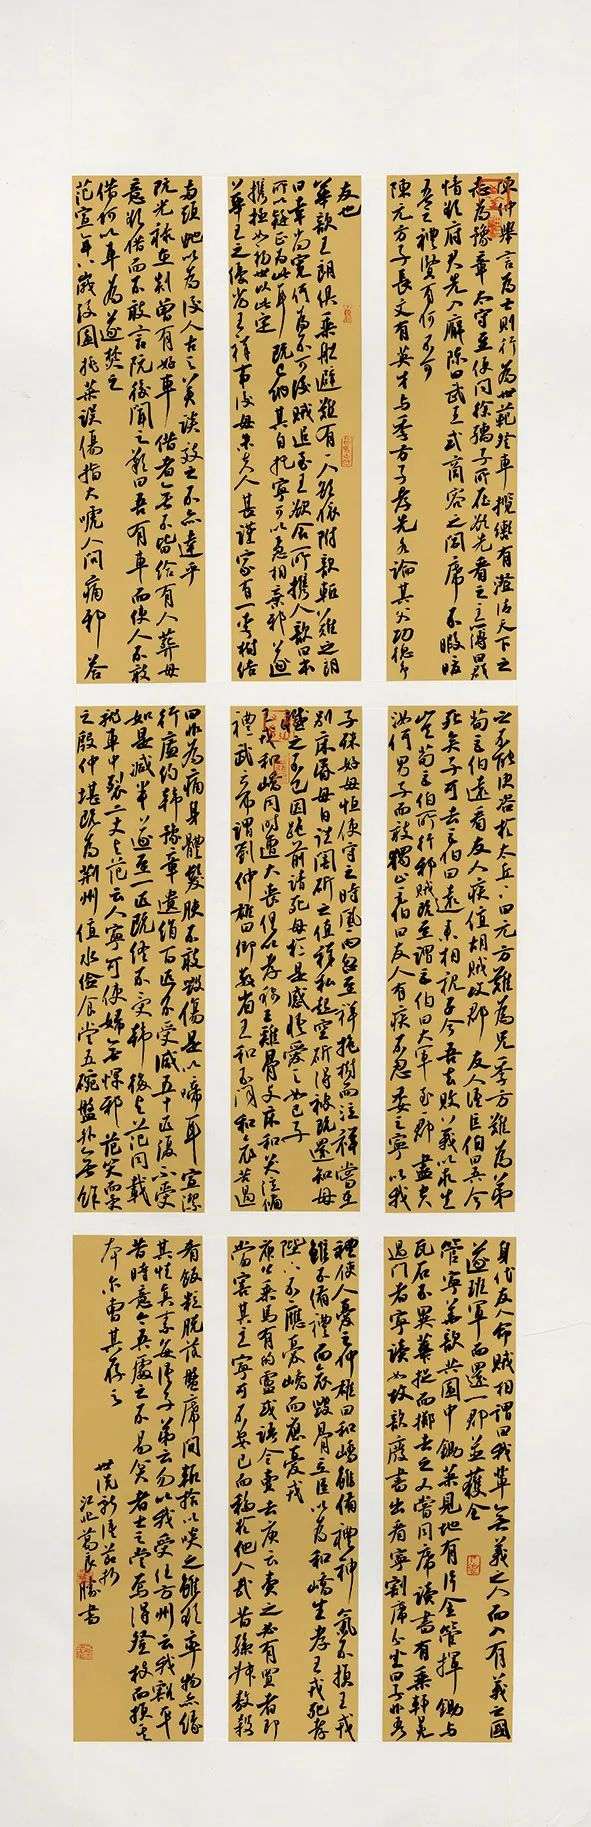 陳仲舉言為士則行為世範登車攬轡有澄清天下之
志為豫章太守至便問徐孺子所在欲先看之主簿曰群
情欲府君先入廨陳曰武王式商容之閭席不暇暖
吾之禮賢有何不可
陳元方子長文有英才與季方子孝先各論其父功德爭
之不能決咨於太丘丘曰元方難為兄季方難為弟
荀巨伯遠看友人疾值胡賊攻郡友人語巨伯曰吾今
死矣子可去巨伯曰遠來相視子令吾去敗義以求生
豈荀巨伯所行邪賊既至謂巨伯曰大軍至一郡盡空
汝何男子而敢獨止巨伯曰友人有疾不忍委之寧以我
身代友人命賊相謂曰我輩無義之人而入有義之國
遂班軍而還一郡並獲全
管寧華歆共園中鋤菜見地有片金管揮鋤與
瓦石不異華捉而擲去之又嘗同席讀書有乘軒冕
過門者寧讀如故歆廢書出看寧割席分坐曰子非吾
友也
華歆王朗俱乘船避難有一人欲依附歆輒難之朗
曰幸尚寬何為不可後賊追至王欲舍所攜人歆曰本
所以疑正為此耳既已納其自托寧可以急相棄邪遂
攜拯如初世以此定
華王之優劣王祥事後母朱夫人甚謹家有一李樹結
子殊好母恒使守之時風雨忽至祥抱樹而泣祥嘗在
別床眠母自往闇斫之值祥私起空斫得被既還知母
憾之不已因跪前請死母於是感悟愛之如己子
王戎和嶠同時遭大喪俱以孝稱王雞骨支床和哭泣備
禮武帝謂劉仲雄曰卿數省王和不聞和哀苦過
禮使人憂之仲雄曰和嶠雖備禮神氣不損王戎
雖不備禮而哀毀骨立臣以為和嶠生孝王戎死孝
陛下不應憂嶠而應憂戎
庾公乘馬有的盧或語令賣去庾云賣之必有買者即
當害其主寧可不安己而移於他人哉昔孫叔敖殺
兩頭蛇以為後人古之美談效之不亦達乎
阮光祿在剡曾有好車借者無不皆給有人葬母
意欲借而不敢言阮後聞之歎曰吾有車而使人不敢
借何以車為遂焚之
范宣年八歲後園挑菜誤傷指大啼人問痛邪答
曰非為痛身體髮膚不敢毀傷是以啼耳宣潔
行廉約韓豫章遺絹百匹不受減五十匹復不受
如是減半遂至一匹既終不受韓後與范同載
就車中裂二丈與范云人寧可使婦無褌邪范笑而受
之殷仲堪既為荊州值水儉食常五碗盤外無餘
肴飯粒脫落盤席間輒拾以啖之雖欲率物亦緣
其性真素每語子弟云勿以我受任方州云我豁平
昔時意今吾處之不易貧者士之常焉得登枝而損其
本爾曹其存之
世說新語節抄
江北葛良勝書